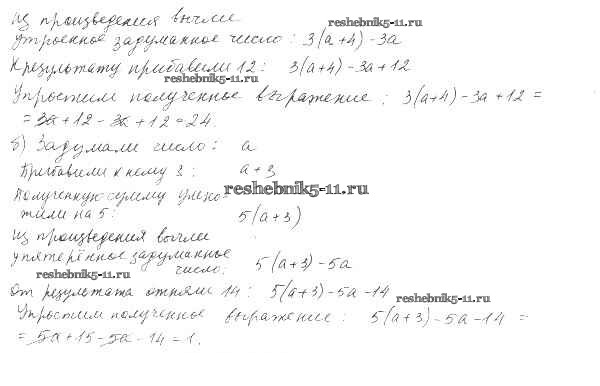 из произведения вычли
reshebnik5-11.ru
утроенное задуманное число: 3(a+4)-3a
К результату прибавили 12: 3(a+4)-3a+12
reshebnik5-11.ru
Упростим полученное выражение: 3(a+4)-3a+12=
=3a+12-3a+12=24.
б) Задумали число: a
Прибавили к нему 3: a+3
reshebnik5-11.ru
Полученную сумму умно-
жили на 5: 5(a+3)
из произведения вычли
упятерённое задуманное
число: 5(a+3)-5a
reshebnik5-11.ru
От результата отняли 14: 5(a+3)-5a-14
reshebnik5-11.ru
Упростим полученное выражение: 5(a+3)-5a-14=
=5a+15-5a-14=1.